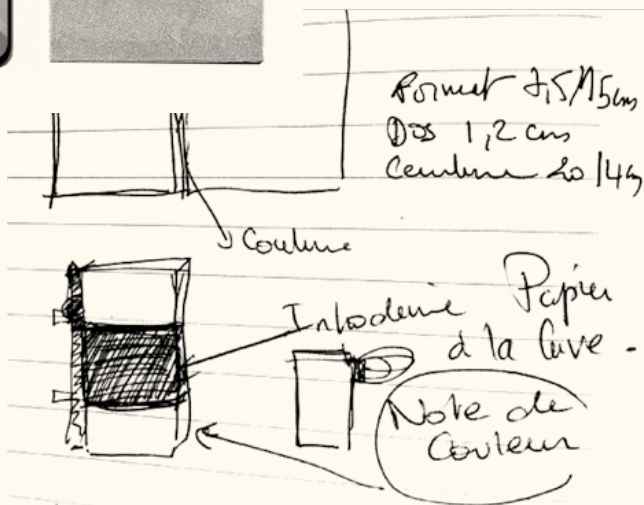 Format 7,5/15cm
Dos 1,2 cm
Ceinture 20/4cm
Couture
Papier
à la Cuve.
Note de
Couleur